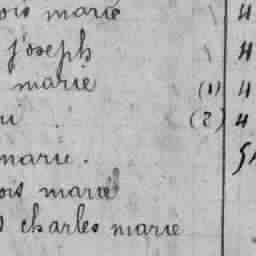 ois marie 4
joseph 4
marie (1) 4
(2) 4
marie.
ois marie
charles marie